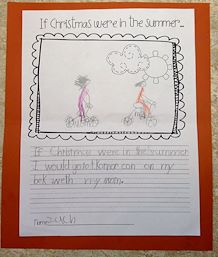 If Christmas were in the summer...
If Christmas were in the summer
I would go to t con on my
bek weth my mom.
Name Zach